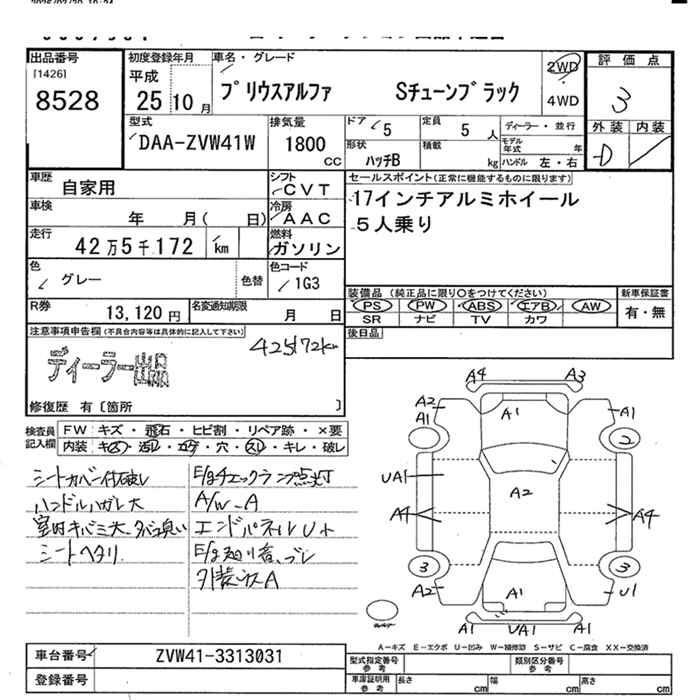 出品番号
[1426]
8528
初度登録年月
平成
25 年 10 月
車名・グレード
プリウスアルファ Sチューンブラック
2WD
4WD
評価点
3
外装 内装
D
型式
DAA-ZVW41W
排気量
1800
CC
ドア
5
定員
5 人
ディーラー・並行
形状
ハッチB
積載
kg
モデル年式 年
ハンドル 左・右
車歴
自家用
シフト
CVT
車検
年 月( 日)
冷房
AAC
走行
42万5千172 km
燃料
ガソリン
色
グレー
色替
色コード
1G3
R券
13,120円
名変通知期限
月 日
セールスポイント(正常に機能するものに限ります)
17インチアルミホイール
5人乗り
装備品(純正品に限り○をつけてください)
PS PW ABS エアB AW
SR ナビ TV カワ
新車保証書
有・無
後日品
注意事項申告欄(不具合内容等は具体的に記入して下さい)
425172km
ディーラー出品
修復歴 有〔箇所 〕
検査員記入欄
FW キズ・飛石・ヒビ割・リペア跡・×要
内装 キズ・汚レ・コゲ・穴・スレ・キレ・破レ
シートカバー付破レ
ハンドルハガレ大
室内キバミ大 タバコ臭い
シートヘタリ
E/gチェックランプ点灯
A/W-A
エンドパネルU+
A4 A3
A2
A1
A1
A1
2
UA1
A2
A4
A4
3
3
A2
A1
U1
A1
UA1
A1
A-キズ E-エクボ U-凹み W-補修跡 S-サビ C-腐食 XX-交換済
車台番号
ZVW41-3313031
登録番号
型式指定番号 参考
類別区分番号 参考
車庫証明用 参考
長さ cm 幅 cm 高さ cm